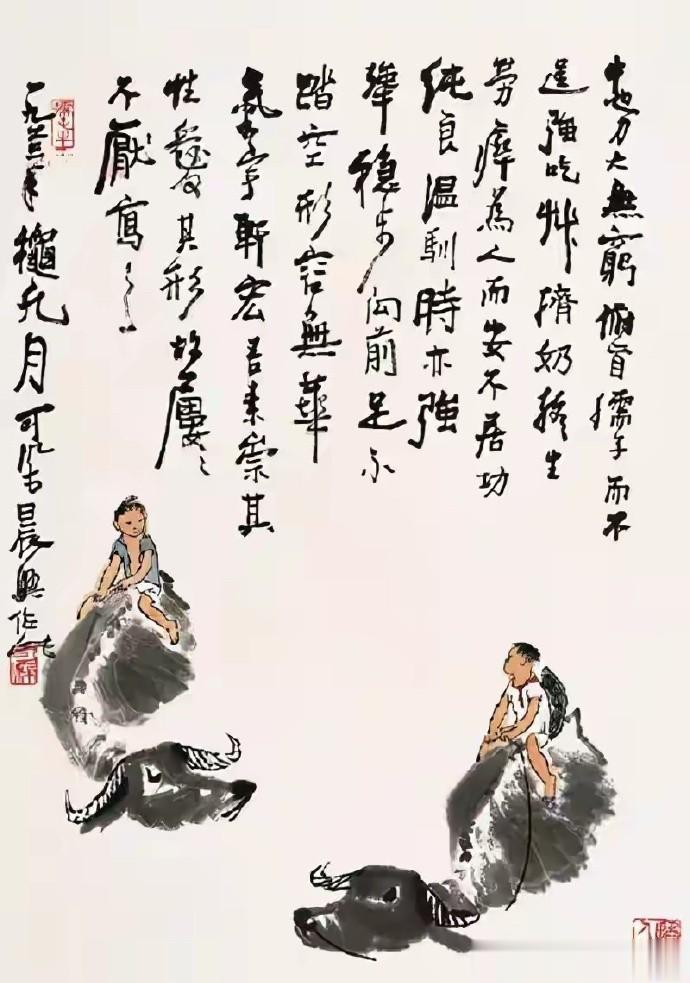 牛也力大無窮俯首孺子而不
逞強吃艸擠奶終生
勞瘁為人而安不居功
純良溫馴時亦強
犟穩步向前足不
踏空形容無華
氣宇軒宏吾素崇其
性愛其形故屢々
不厭寫之
一九六三年龝九月可染晨興作